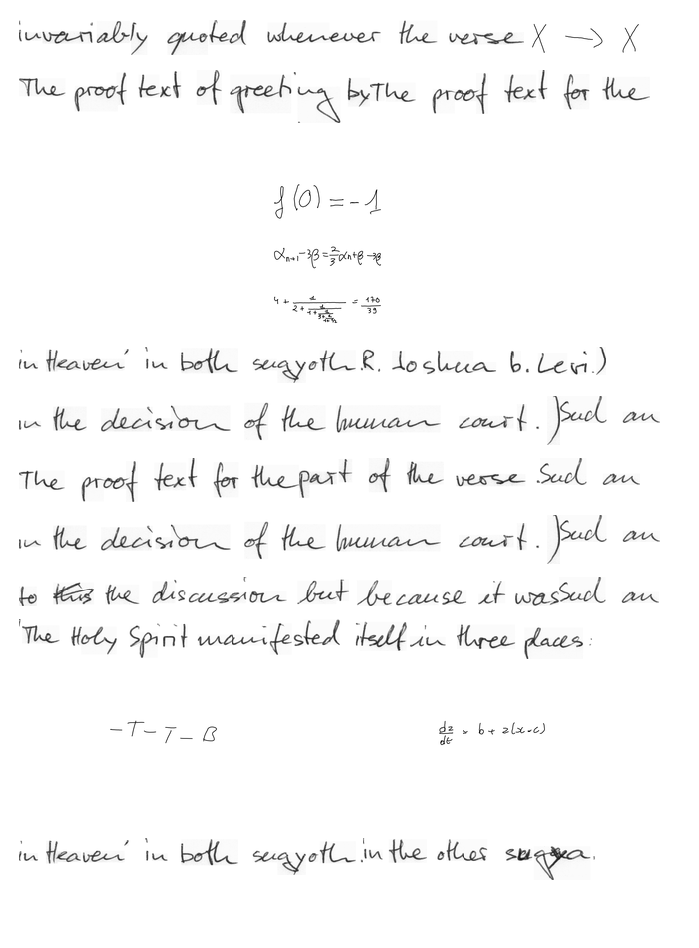 invariably quoted whenever the verse X → X
The proof text of greeting by The proof text for the
f(0) = -1
α_{n+1} - 3β = 2/3 α_n + β - 3β
4 + 1/(2 + 1/(1 + 1/(3 + 1/(1 + 1/2)))) = 170/39
in Heaven' in both sugyoth. R. Joshua b. Levi.)
in the decision of the human court.) Sud an
The proof text for the part of the verse. Sud an
in the decision of the human court.) Sud an
to this the discussion but because it was Sud an
'The Holy Spirit manifested itself in three places:
-T - T - B dz/dt = b + z(x-c)
in Heaven' in both sugyoth. in the other sugya.